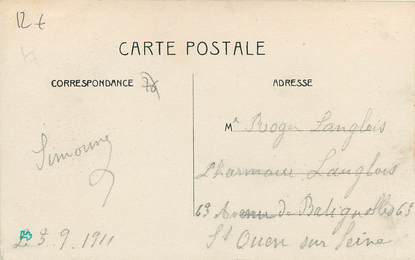 12 €
CARTE POSTALE
CORRESPONDANCE
ADRESSE
Mr Roger Langlois
Pharmacie Langlois
63 Avenue de Batignolles 63
St Ouen sur Seine
Simoune
Le 3.9.1911